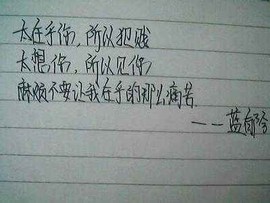 太在乎你，所以犯贱
太想你，所以见你
麻烦不要让我在乎的那么痛苦.
——蓝